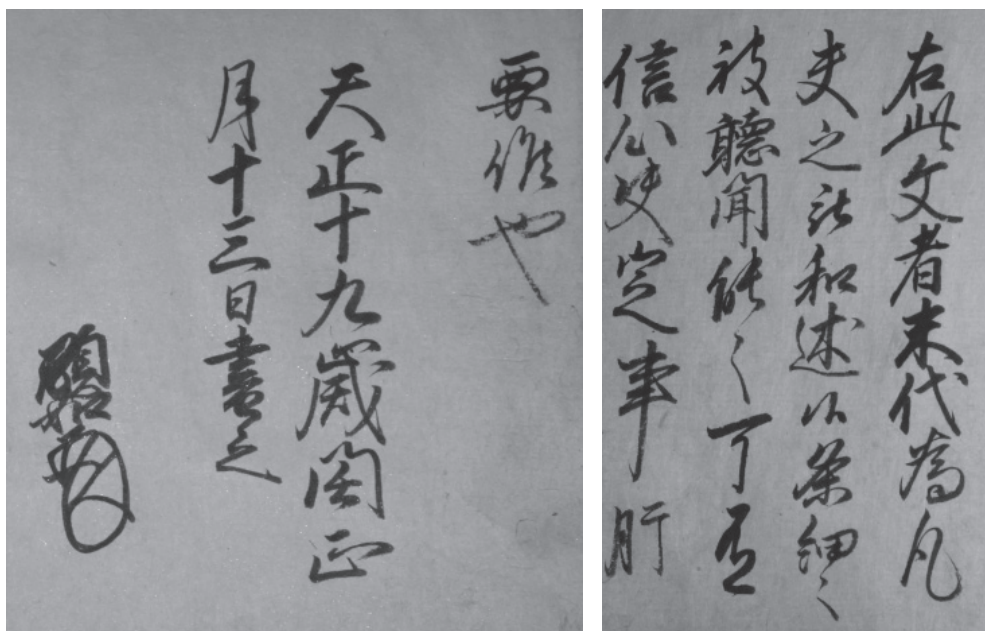 右此文者末代為凡
夫之和述候条細々
被聴聞能々可有
信心決定事肝
要候也
天正十九歳閏正
月十三日書之